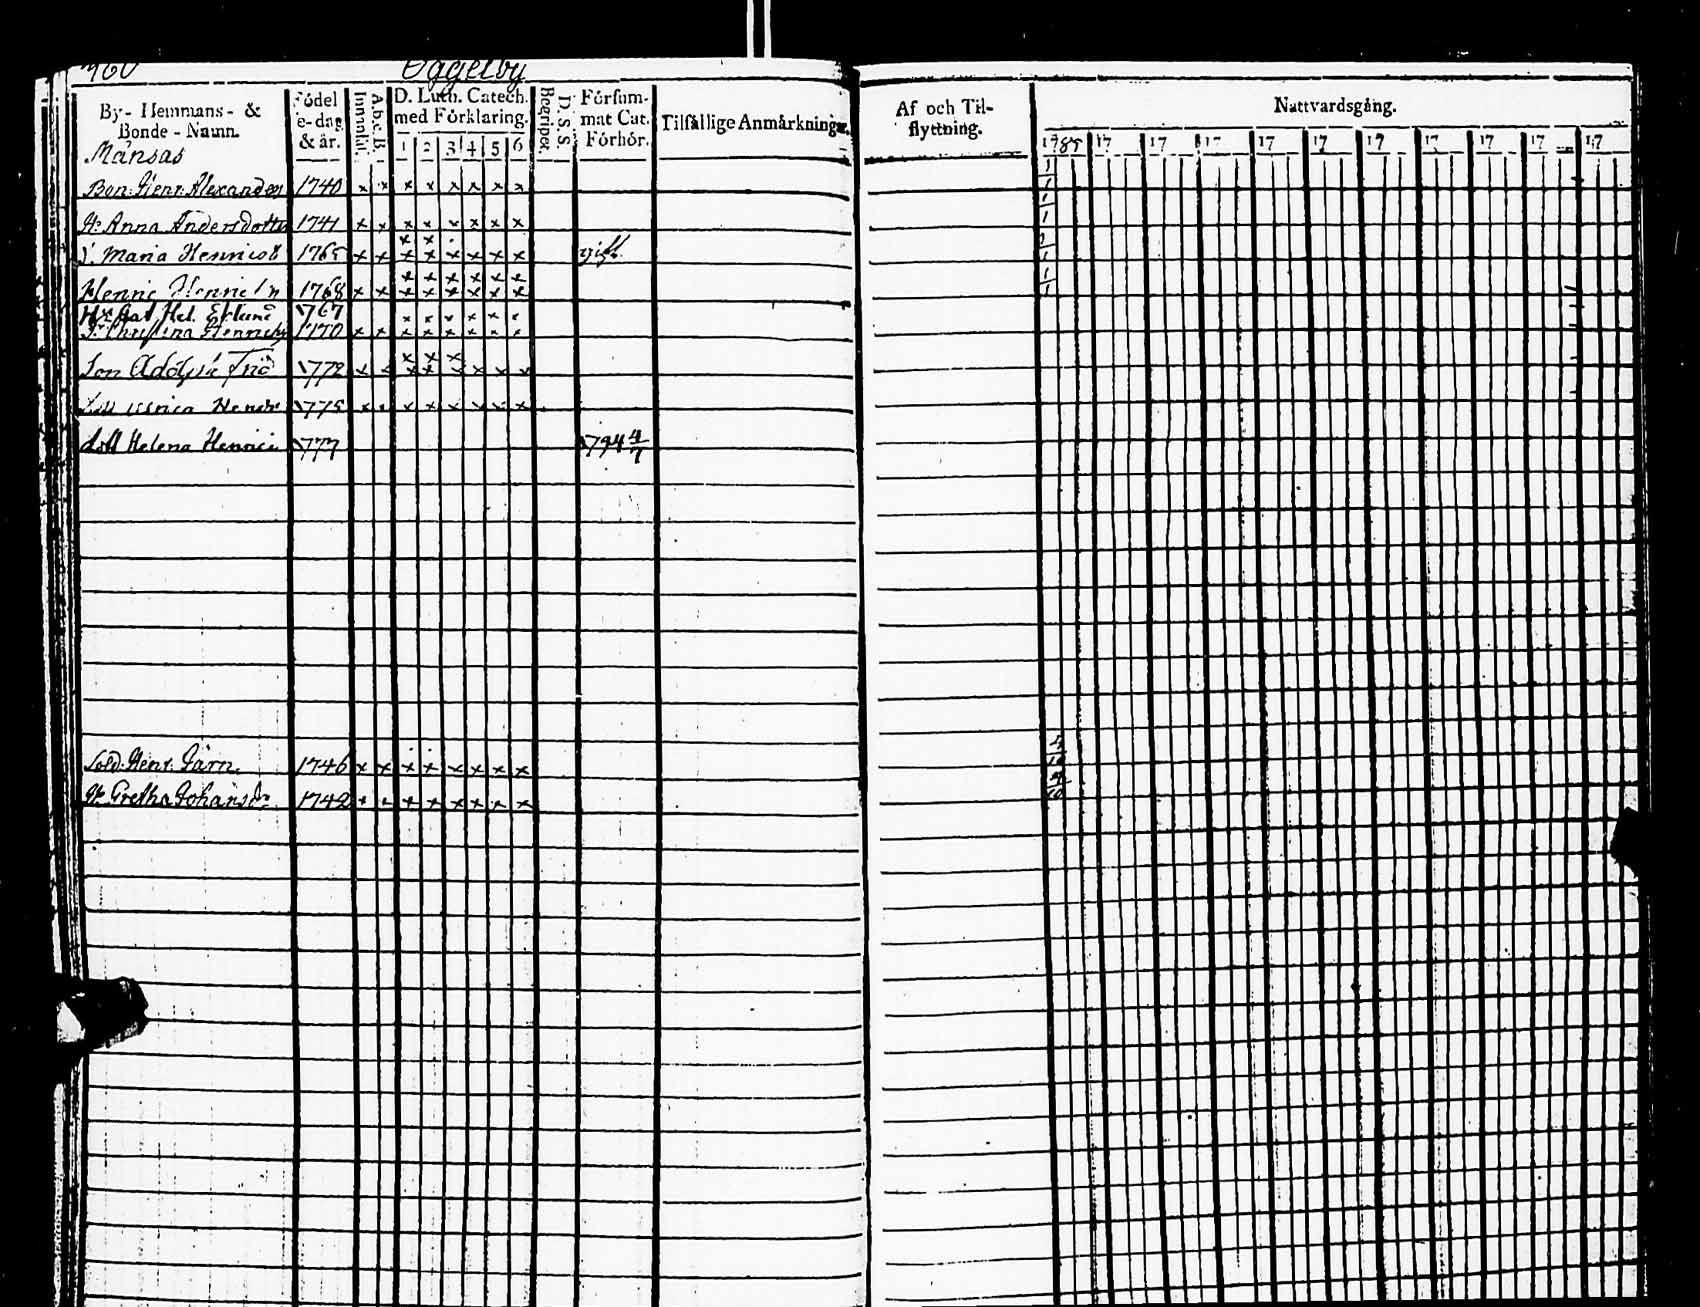 160 Oggelby
By- Hemmans- & Bonde-Namn.
Födelse-dag & år.
Innanläs.
A.b.c.B.
D. Luth. Catech. med Förklaring.
1 2 3 4 5 6
Begriper.
D. s. s.
Försummat Cat. Förhör.
Tilfällige Anmärkningar.
Af och Tilflyttning.
Nattvardsgång.
1785 17 17 17 17 17 17 17 17 17 17
Månsas
Bon: Henr: Alexanders 1740 x x x x x x x x
H: Anna Andersdotter 1741 x x x x x x x x
Maria Henricsd 1765 x x x x x x x x gift
Henric 1768 x x x x x x x x
Hel. Eklund 1767
Christina 1770 x x x x x x x x
Son Adolph 1772 x x x x x x x x
Henr 1775 x x x x x x x x
dott Helena Henric 1777 1794 4/7
Sold: Henr: Järn 1746 x x x x x x x x 4/10
H: Gretha Johansdr 1742 x x x x x x x x 4/10